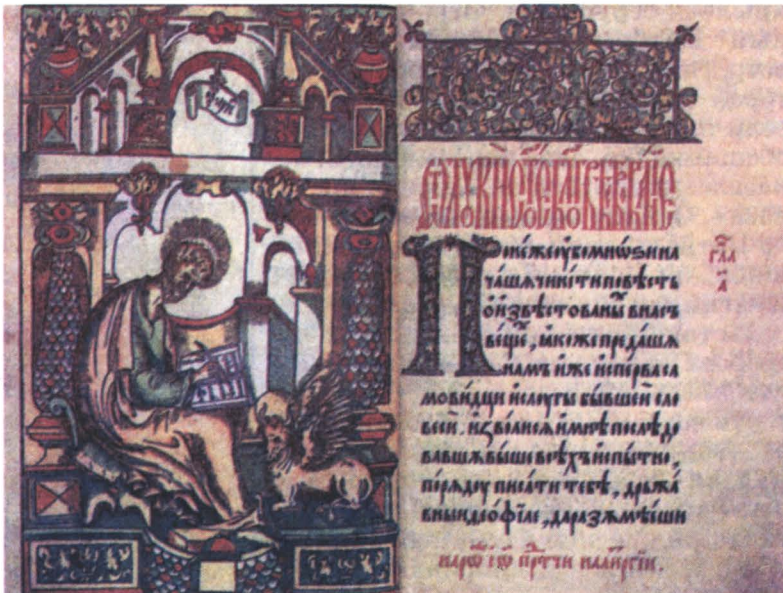 Ѿ лѹкѝ ст҃ое бл҃говѣствованїе
Поне́же ѹ҆́бо мнѡ́ѕи на
ча́шѧ чини́ти по́вѣсть
о҆ и҆звѣ́стованыⷯ в насъ
ве́щеⷯ, ꙗ҆́коже преда́шѧ
на́мъ и҆́же и҆спе́рва са
мови́дци и҆ слѹгы̀ бы́вшеи сло
весѝ. и҆зво́лисѧ и҆ мнѣ̀ послѣ́до
вавшѫ вы́ше всѣ́хъ и҆спы́тно,
по́рѧдѹ писа́ти тебѣ̀, дрьжа́
вныи ѳео́фїле, да разꙋмѣ́еши
гла҃
а҃